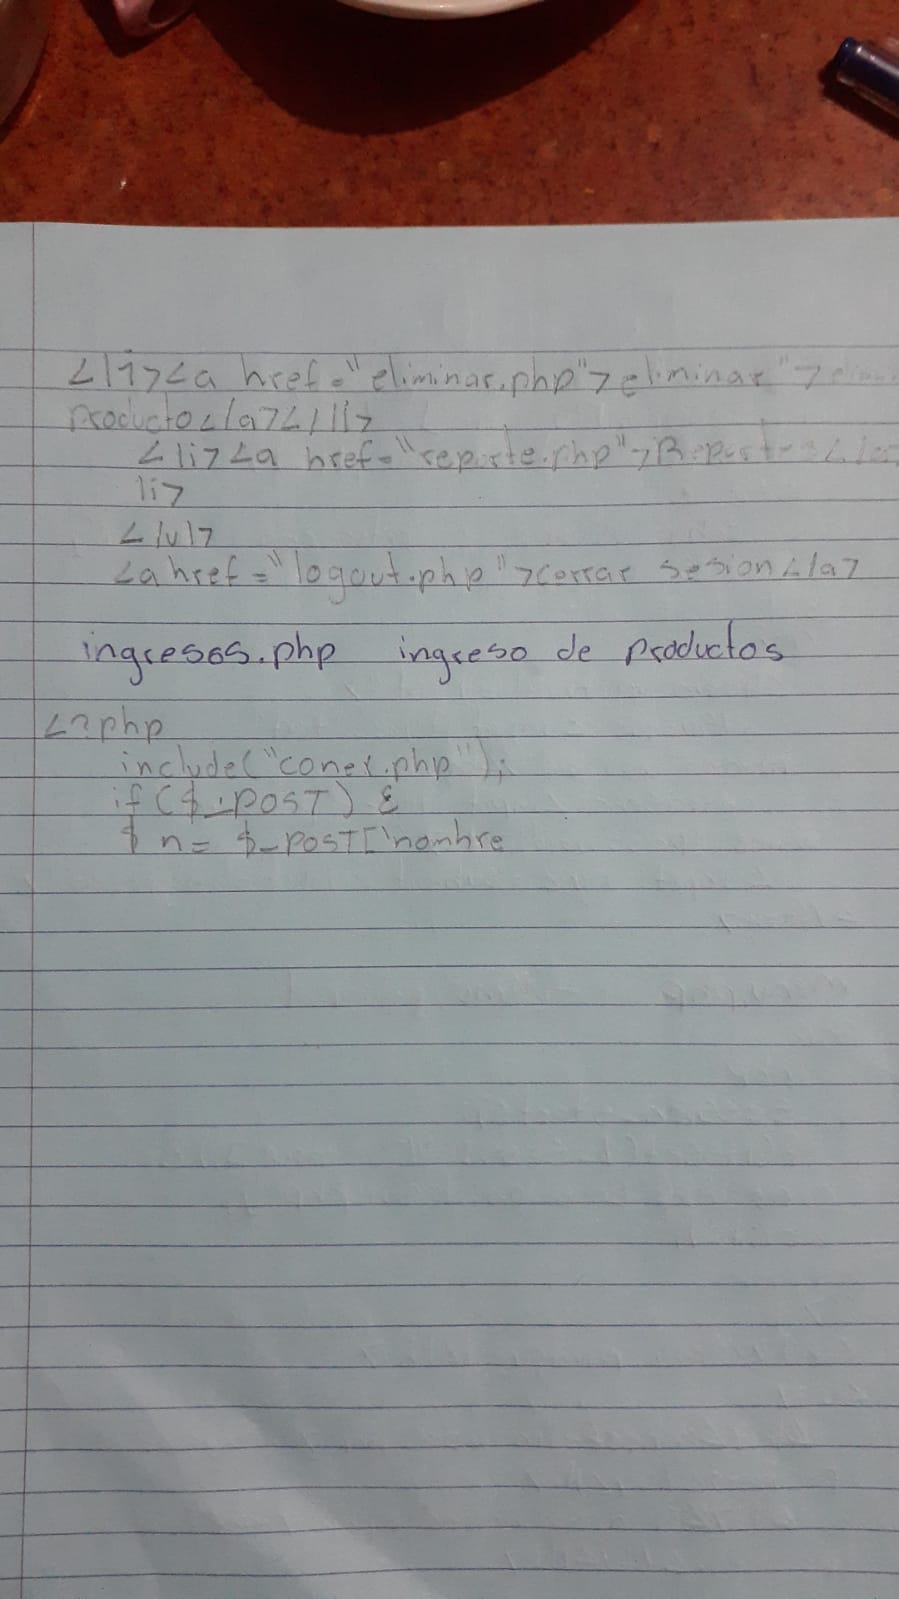 <li><a href="eliminar.php">eliminar">
producto</a></li>
<li><a href="reporte.php">Reporte</a
li>
</ul>
<a href="logout.php">cerrar sesion</a>
ingresos.php ingreso de productos
<?php
include("conex.php");
if($_POST) {
$n= $_POST['nombre